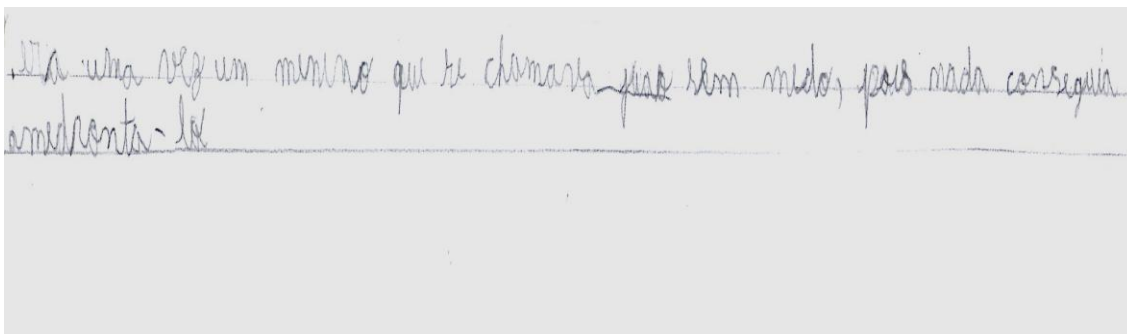 era uma vez um menino que se chamava joao sem medo, pois nada conseguia
amedronta-lo